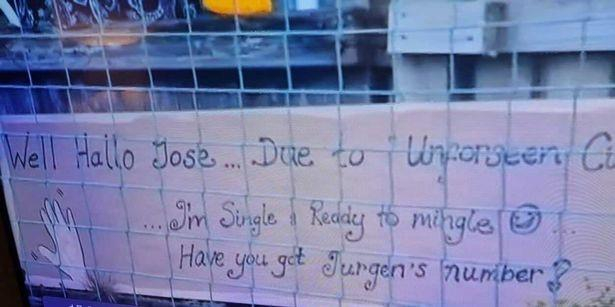 Well Hallo Jose... Due to "Unforseen Ci
...I'm Single & Ready to mingle ☺...
Have you got Jurgen's number?